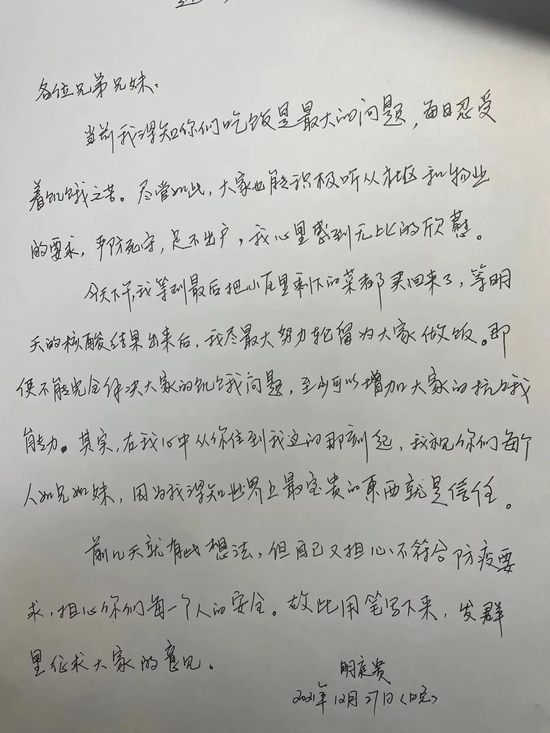 各位兄弟兄妹：
当前我得知你们吃饭是最大的问题，每日忍受
着饥饿之苦。尽管如此，大家也能积极听从社区和物业
的要求，严防死守，足不出户，我心里感到无比的欣慰。
今天下午我等到最后把小店里剩下的菜都买回来了，等明
天的核酸结果出来后，我尽最大努力轮留为大家做饭。即
便不能完全解决大家的饥饿问题，至少可以增加大家的抗饿
能力。其实，在我心中从你住到我这的那刻起，我视你们每个
人如兄如妹，因为我得知世界上最宝贵的東西就是信任。
前几天就有此想法，但自己又担心不符合防疫要
求，担心你们每一个人的安全。故此用笔写下来，发群
里征求大家的意见。
明庭贵
2021年12月27日